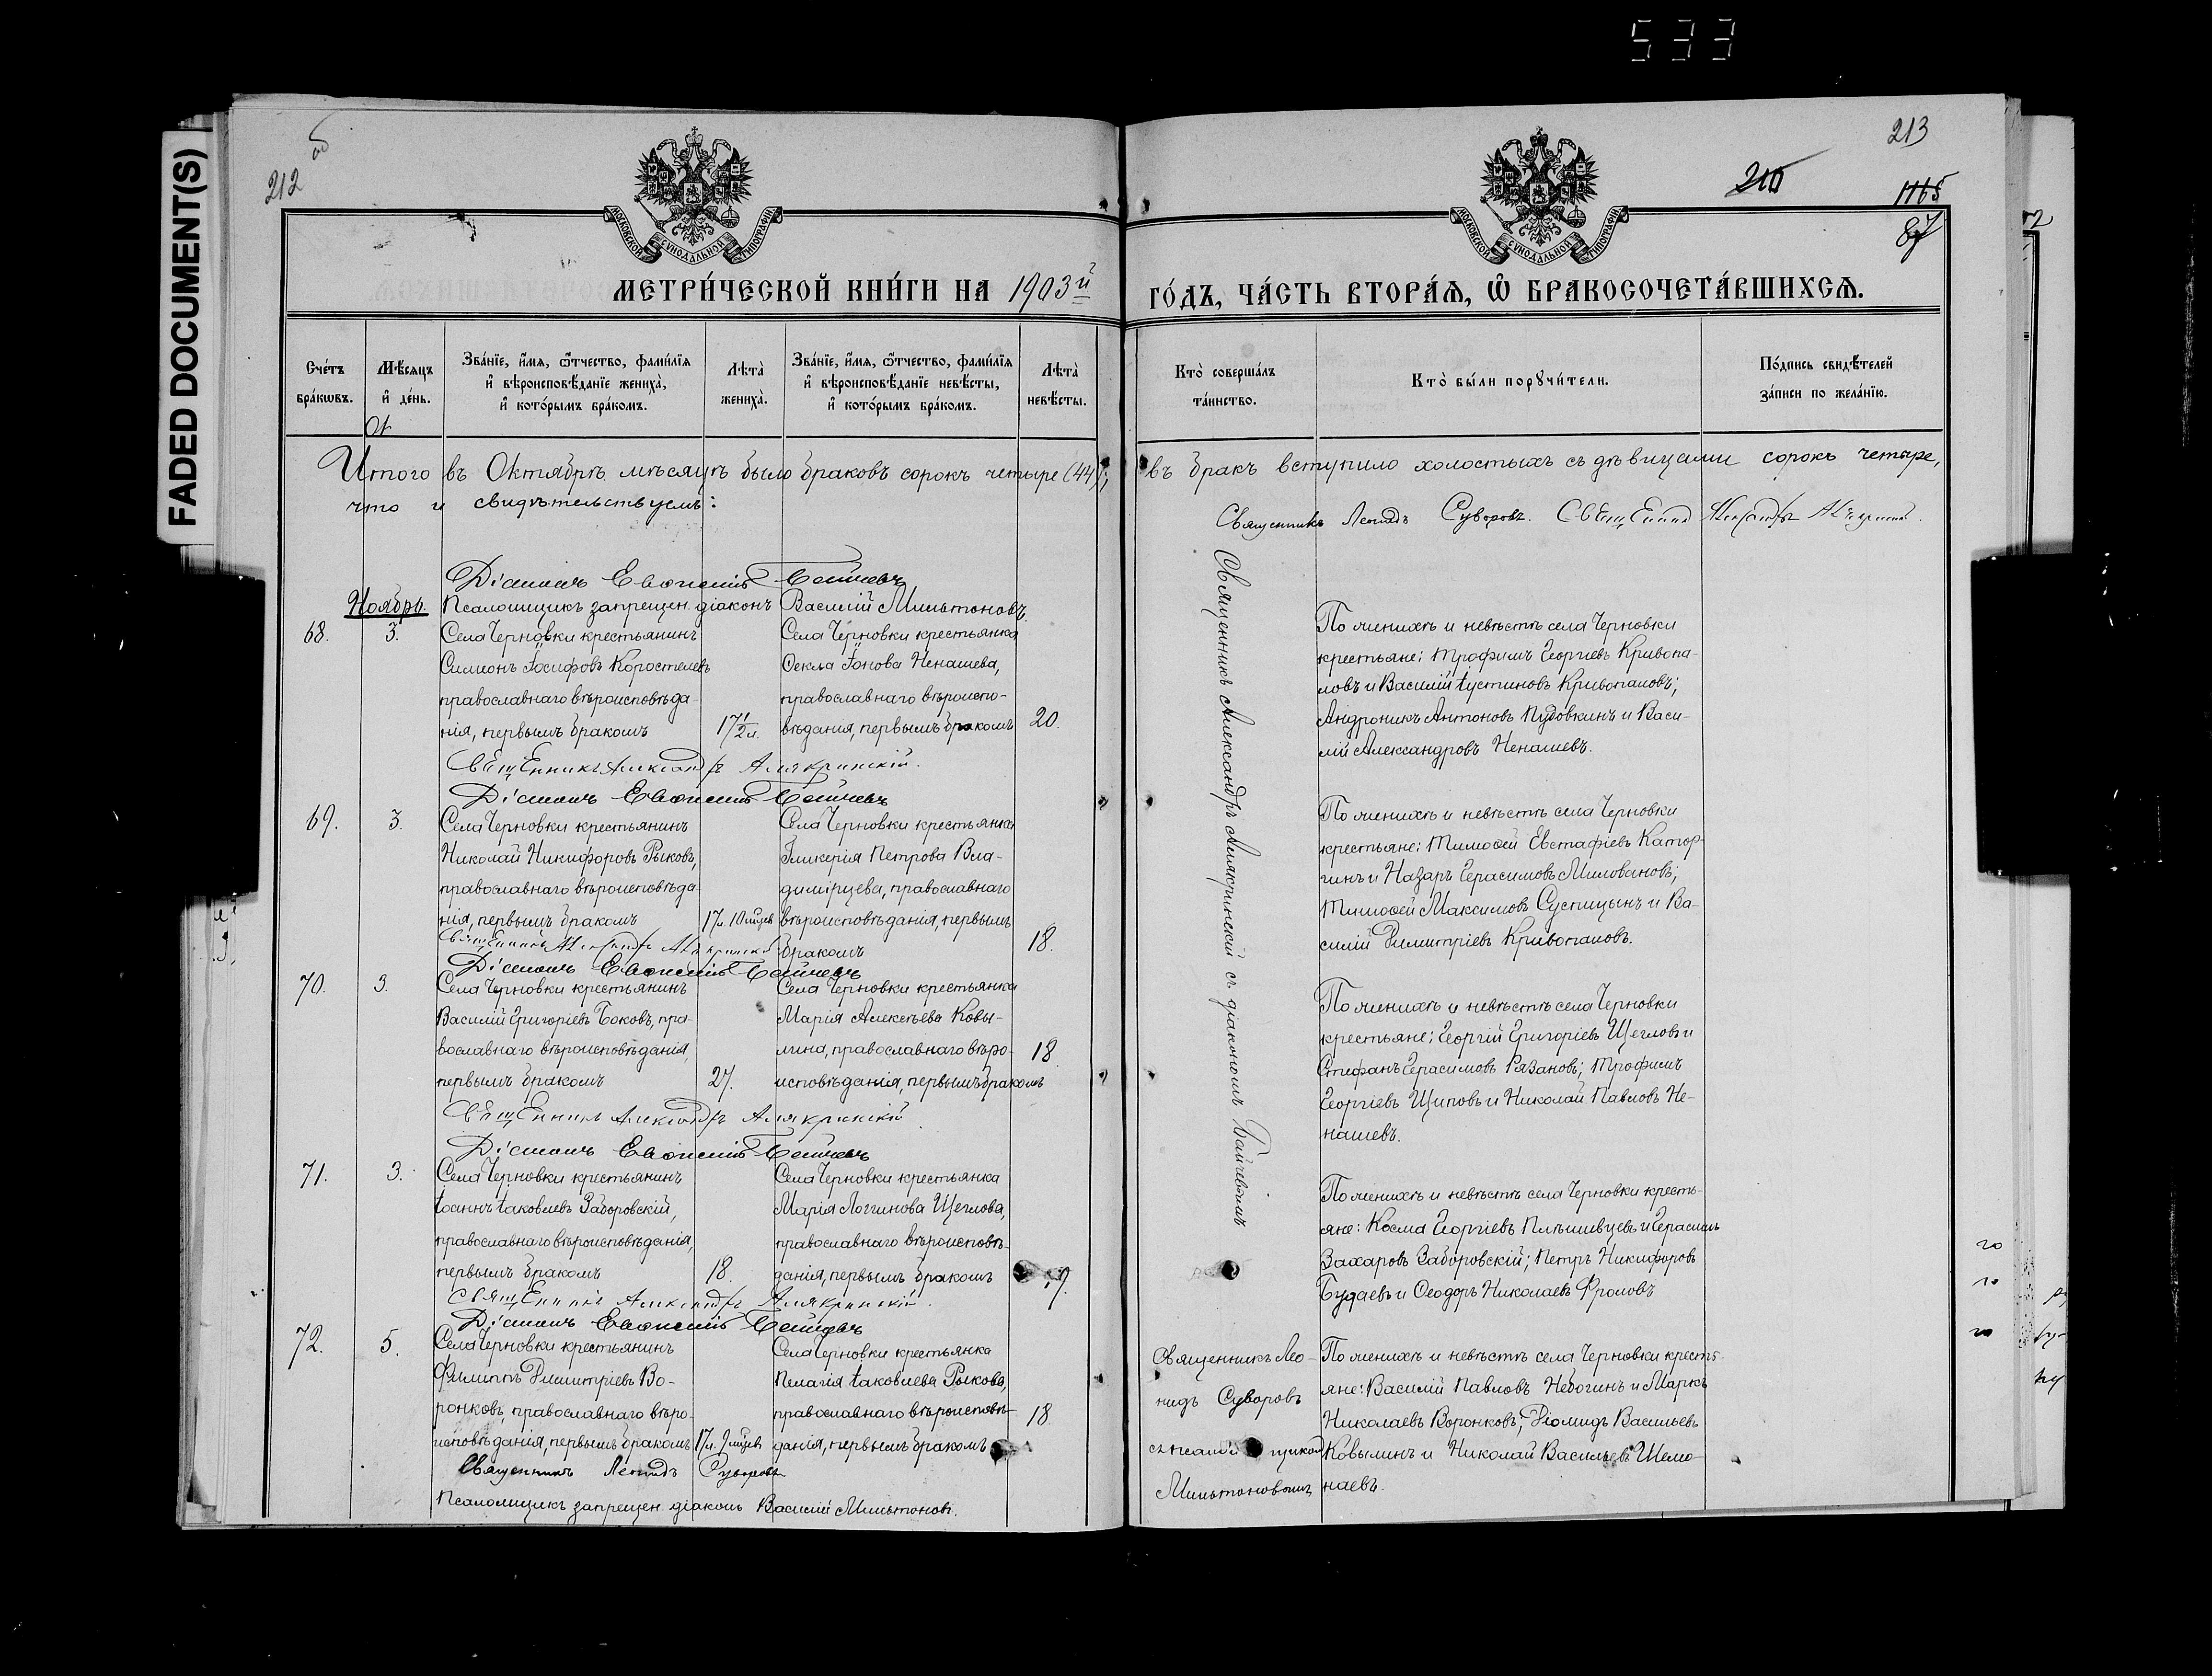 533
FADED DOCUMENT(S)
212 об
213
1165
87
МОСКОВСКОЙ СѴНОДАЛЬНОЙ ТИПОГРАФІИ
МОСКОВСКОЙ СѴНОДАЛЬНОЙ ТИПОГРАФІИ
МЕТРИ́ЧЕСКОЙ КНИ́ГИ НА 1903й
ГО́ДЪ, ЧА́СТЬ ВТОРА́Ѧ, Ѡ҆ БРАКОСОЧЕТА́ВШИХСѦ.
Сче́тъ бра́кѡвъ.
Мѣ́сѧцъ и҆ де́нь.
Зва́нїе, и҆́мѧ, ѻ҆́тчество, фамѝлїѧ
и҆ вѣроисповѣ́данїе жениха̀,
и҆ кото́рымъ бра́комъ.
Лѣта̀ жениха̀.
Зва́нїе, и҆́мѧ, ѻ҆́тчество, фамѝлїѧ
и҆ вѣроисповѣ́данїе невѣ́сты,
и҆ кото́рымъ бра́комъ.
Лѣта̀ невѣ́сты.
Кто̀ соверша́лъ та́инство.
Кто̀ бы́ли порꙋчи́тели.
По́дпись свидѣ́телей
за́писи по жела́нїю.
Итого въ Октябрѣ мѣсяцѣ было браковъ сорокъ четыре (44);
въ бракъ вступило холостыхъ съ дѣвицами сорокъ четыре,
что и свидѣтельствуемъ:
Священникъ Леонидъ Суворовъ. Священникъ Александръ Алякринскій.
Діаконъ Евѳимій Байчевъ
Псаломщикъ запрещен. діаконъ Василій Мильтоновъ.
Ноябрь.
68.
3.
Села Черновки крестьянинъ
Симеонъ Іосифовъ Коростелевъ
православнаго вѣроисповѣда-
нія, первымъ бракомъ
17 1/2 л.
Села Черновки крестьянка
Ѳекла Іонова Ненашева,
православнаго вѣроиспо-
вѣданія, первымъ бракомъ
20.
По женихѣ и невѣстѣ села Черновки
крестьяне: Трофимъ Георгіевъ Кривопа-
ловъ и Василій Іустиновъ Кривопаловъ;
Андроникъ Антоновъ Пудовкинъ и Васи-
лій Александровъ Ненашевъ.
Священникъ Александръ Алякринскій съ діакономъ Байчевымъ
Священникъ Александръ Алякринскій.
Діаконъ Евѳимій Байчевъ
69.
3.
Села Черновки крестьянинъ
Николай Никифоровъ Рыковъ,
православнаго вѣроисповѣда-
нія, первымъ бракомъ
17 л. 10 мцев
Села Черновки крестьянка
Гликерія Петрова Вла-
димірцева, православнаго
вѣроисповѣданія, первымъ
бракомъ
18.
По женихѣ и невѣстѣ села Черновки
крестьяне: Тимоѳей Евстафіевъ Катор-
гинъ и Назаръ Герасимовъ Миловановъ;
Тимоѳей Максимовъ Суспицынъ и Ва-
силій Димитріевъ Кривопаловъ.
Священникъ Александръ Алякринскій
Діаконъ Евѳимій Байчевъ
70.
3.
Села Черновки крестьянинъ
Василій Григоріевъ Боковъ, пра-
вославнаго вѣроисповѣданія,
первымъ бракомъ
27.
Села Черновки крестьянка
Марія Алексѣева Ковы-
лина, православнаго вѣро-
исповѣданія, первымъ бракомъ
18
По женихѣ и невѣстѣ села Черновки
крестьяне: Георгій Григоріевъ Щегловъ и
Стефанъ Герасимовъ Рязановъ; Трофимъ
Георгіевъ Щиповъ и Николай Павловъ Не-
нашевъ.
Священникъ Александръ Алякринскій
Діаконъ Евѳимій Байчевъ
71.
3.
Села Черновки крестьянинъ
Іоаннъ Іаковлевъ Заборовскій,
православнаго вѣроисповѣданія,
первымъ бракомъ
18.
Села Черновки крестьянка
Марія Логгинова Щеглова,
православнаго вѣроисповѣ-
данія, первымъ бракомъ
По женихѣ и невѣстѣ села Черновки кресть-
яне: Косма Георгіевъ Плѣшивцевъ и Герасимъ
Захаровъ Заборовскій; Петръ Никифоровъ
Будаевъ и Ѳеодоръ Николаевъ Фроловъ
Священникъ Александръ Алякринскій.
Діаконъ Евѳимій Байчевъ
72.
5.
Села Черновки крестьянинъ
Филиппъ Димитріевъ Во-
ронковъ, православнаго вѣро-
исповѣданія, первымъ бракомъ
17 л. 9 мцев
Села Черновки крестьянка
Пелагія Іаковлева Рыкова,
православнаго вѣроисповѣ-
данія, первымъ бракомъ
18
Священникъ Лео-
нидъ Суворовъ
Мильтоновымъ
По женихѣ и невѣстѣ села Черновки кресть-
яне: Василій Павловъ Небогинъ и Маркъ
Николаевъ Воронковъ; Діомидъ Васильевъ
Ковылинъ и Николай Васильевъ Шело-
наевъ.
Священникъ Леонидъ Суворовъ
Псаломщикъ запрещен. діаконъ Василій Мильтоновъ.